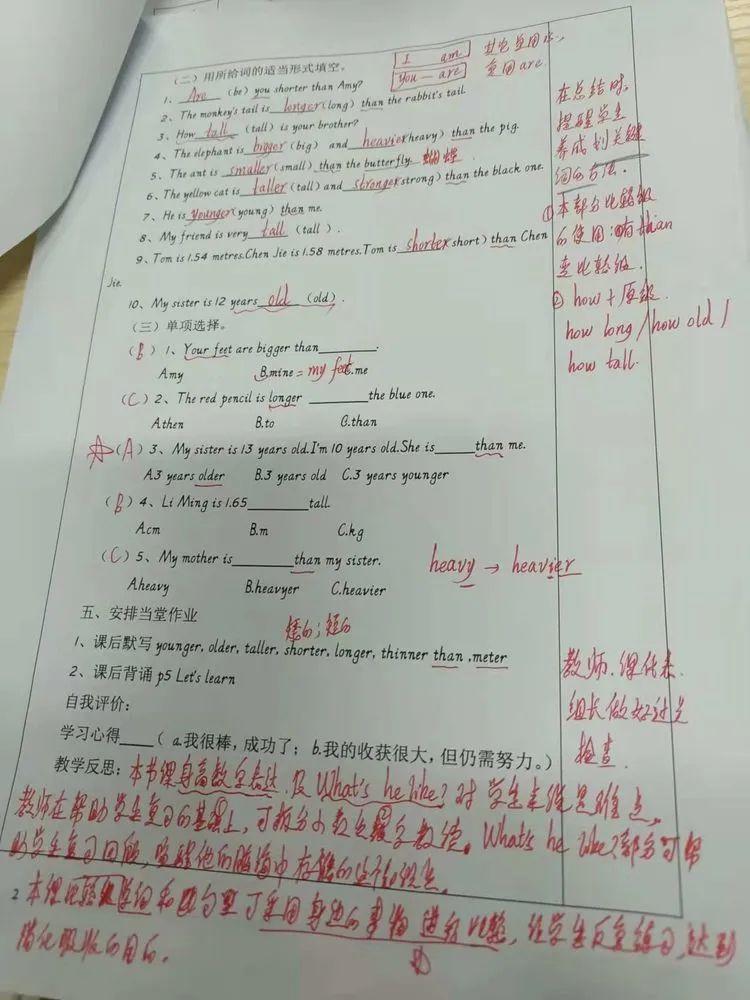 (二)用所给词的适当形式填空。
I am 其它单用is,
you — are 复用are
1、Are (be) you shorter than Amy?
2、The monkey's tail is longer(long) than the rabbit's tail.
3、How tall (tall) is your brother?
4、The elephant is bigger (big) and heavier(heavy) than the pig.
5、The ant is smaller(small) than the butterfly. 蝴蝶
6、The yellow cat is taller(tall) and stronger(strong) than the black one.
7、He is younger(young) than me.
8、My friend is very tall (tall ).
9、Tom is 1.54 metres.Chen Jie is 1.58 metres.Tom is shorter(short) than Chen
Jie.
10、My sister is 12 years old (old).
在总结时,
提醒学生
养成划关键
词的方法.
①本部分比较级
的使用:有than
变比较级.
② how + 原级.
how long / how old /
how tall.
(三)单项选择。
(B) 1、Your feet are bigger than________.
A.my B.mine = my feet C.me
(C) 2、The red pencil is longer ________the blue one.
A.then B.to C.than
(A) 3、My sister is 13 years old.I'm 10 years old.She is______than me.
A.3 years older B.3 years old C.3 years younger
(B) 4、Li Ming is 1.65________tall.
A.cm B.m C.kg
(C) 5、My mother is________than my sister.
heavy → heavier
A.heavy B.heavyer C.heavier
五、安排当堂作业
矮的;短的
1、课后默写 younger, older, taller, shorter, longer, thinner than ,meter
2、课后背诵 p5 Let's learn
教师、课代表、
组长做好过关
检查.
自我评价:
学习心得____( a.我很棒,成功了; b.我的收获很大,但仍需努力。)
教学反思:本节课身高数字表达,及What's he like?对学生来说是难点。
教师在帮助学生复习的基础上,可拆分小数先练字数读。What's he like?部分可帮
助学生复习回顾,
2 本课比较级单词和句型可采用身边的事物进行比较,让学生反复练习,达到
消化吸收的目的.